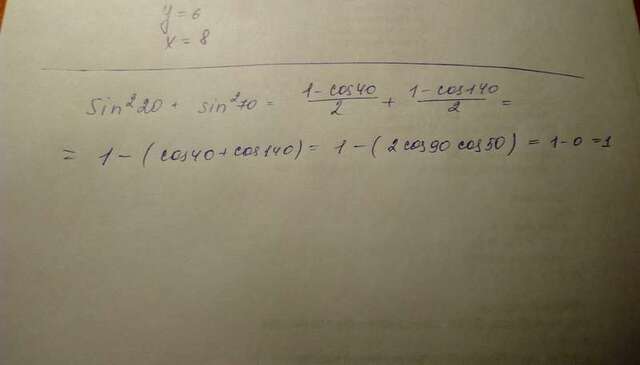 y = 6
x = 8
Sin²20 + sin²70 = (1-cos40)/2 + (1-cos140)/2 =
= 1 - (cos40+cos140) = 1 - (2cos90 cos50) = 1-0 =1